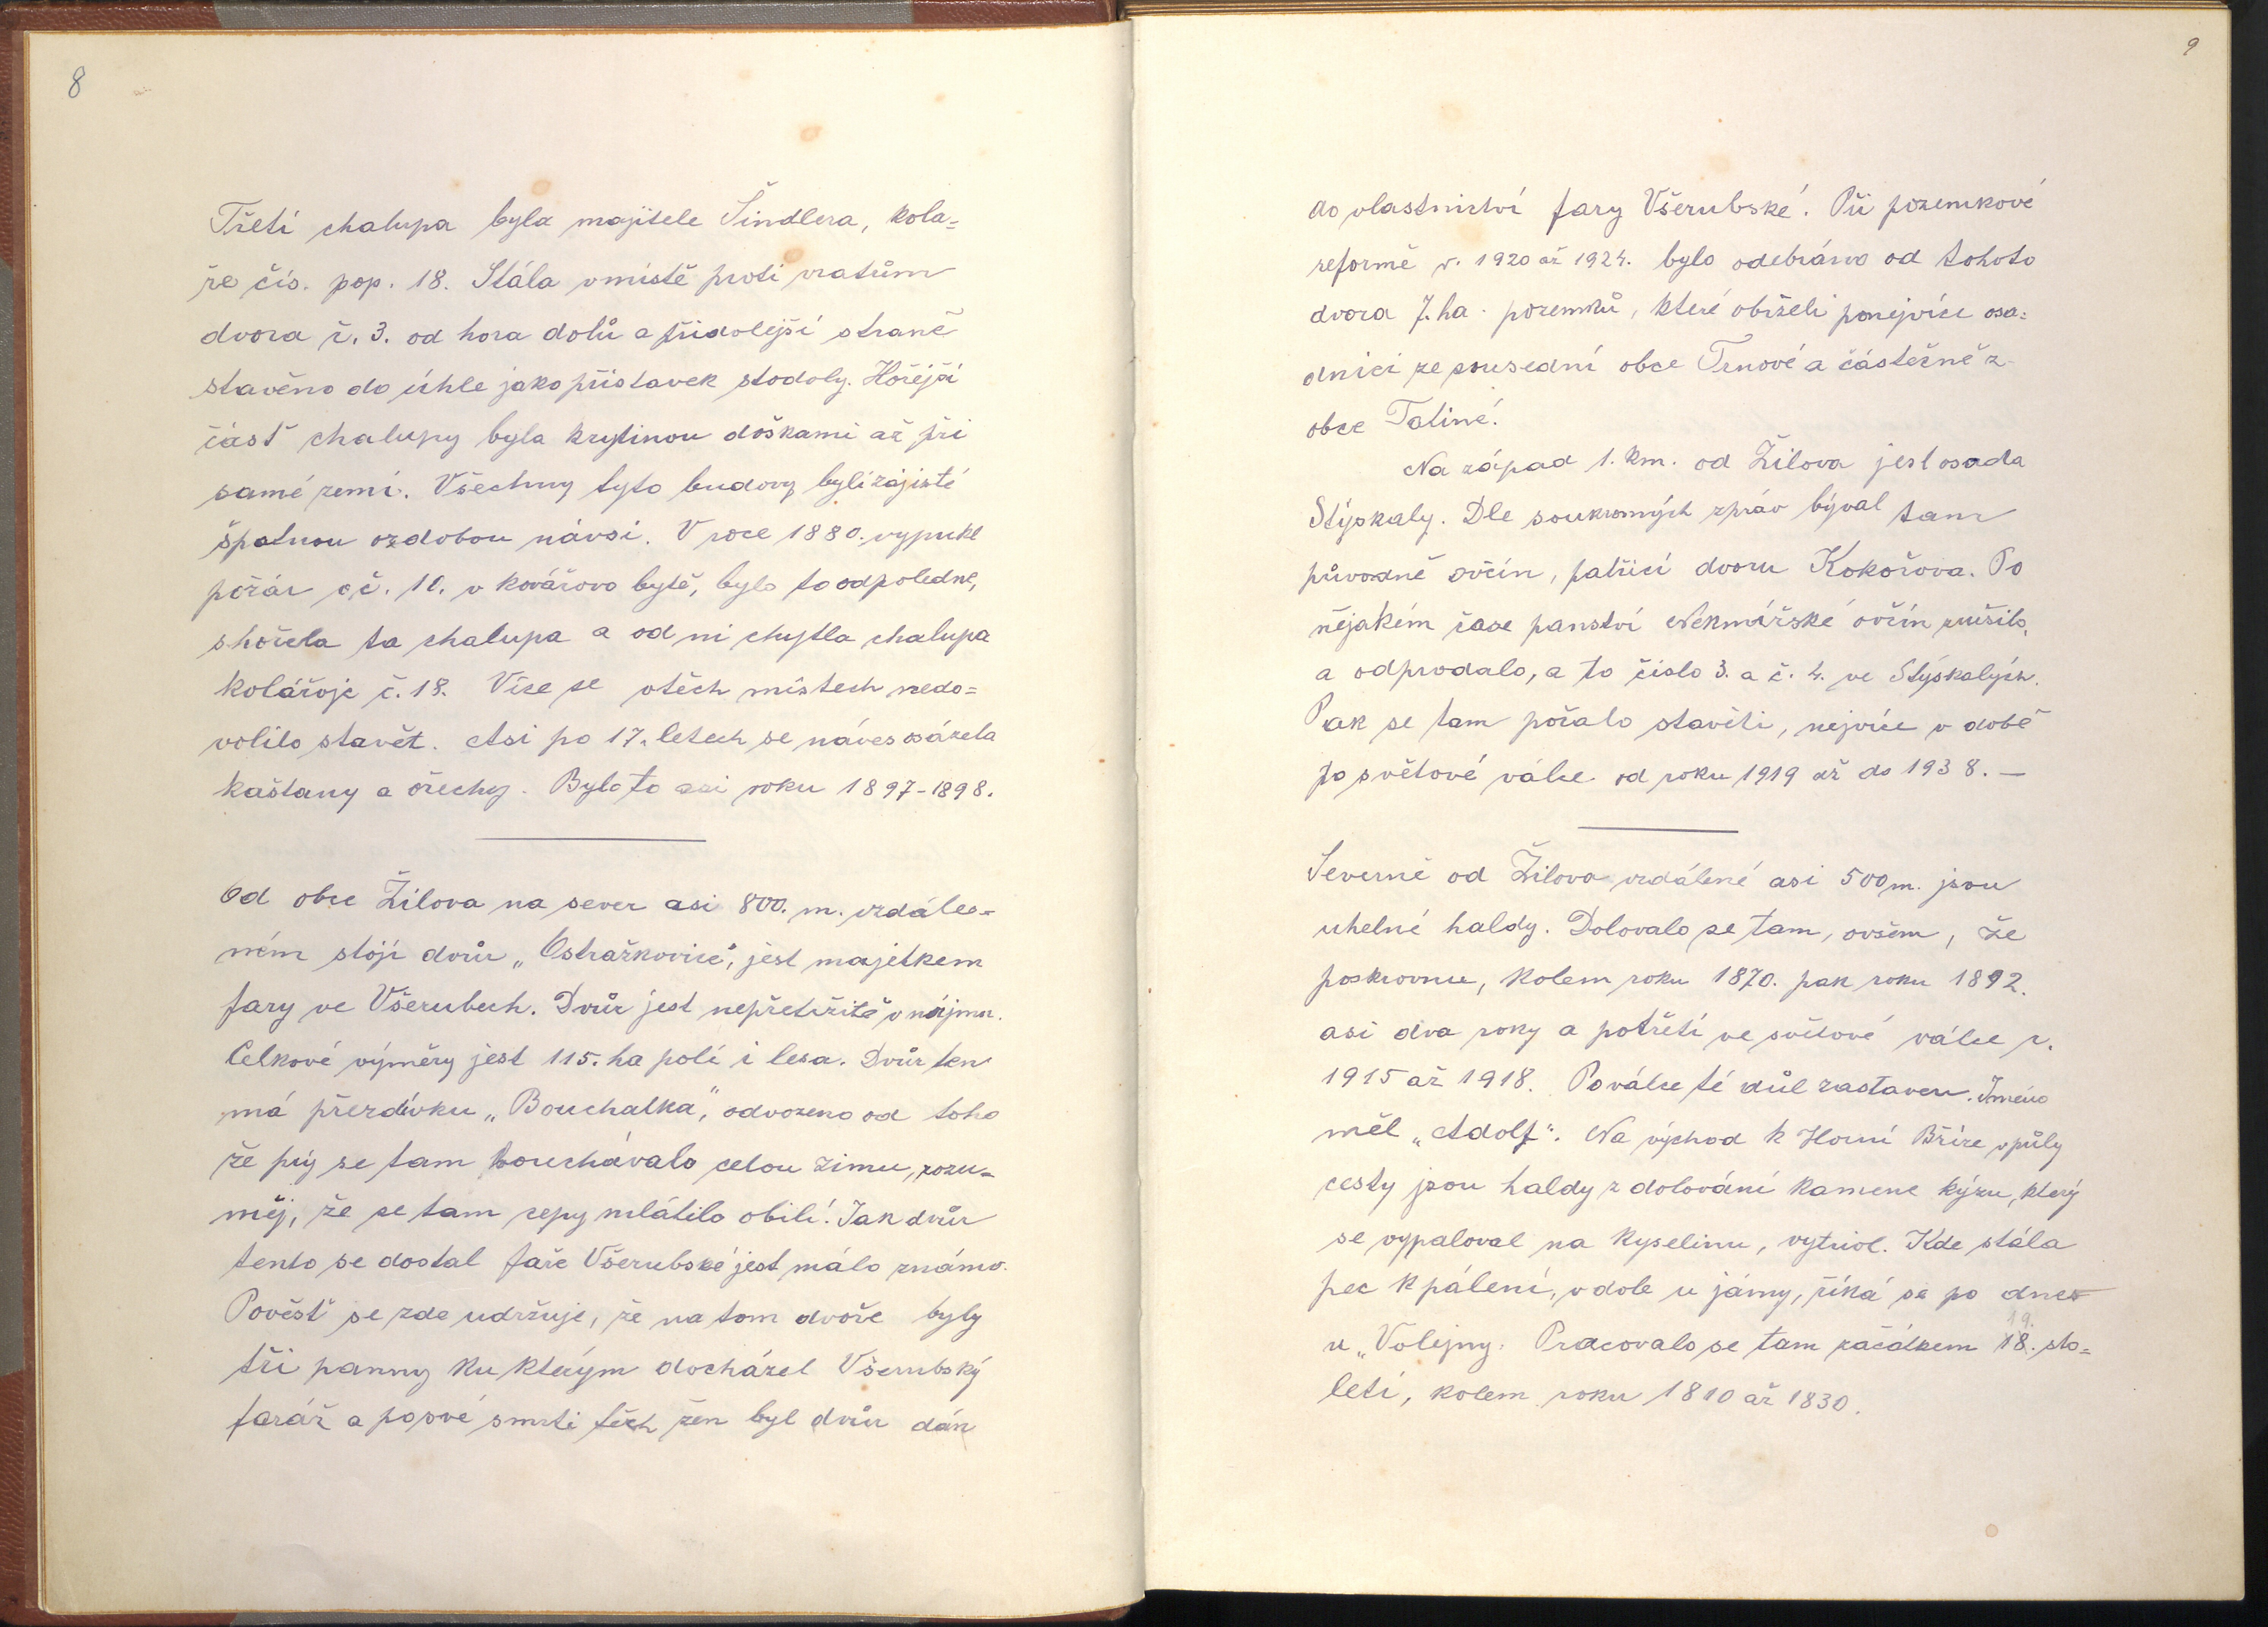 8
Třetí chalupa byla majitele Šindlera, kola=
ře čís. pop. 18. Stála v místě proti vratům
dvora č. 3. od hora dolů a při dolejší straně
stavěno do úhle jako přístavek stodoly. Hořejší
část chalupy byla krytinou doškami až při
samé zemi. Všechny tyto budovy byli zajisté
špatnou ozdobou návsi. V roce 1880. vypukl
požár v č. 10. v kovářovo bytě, bylo to odpoledne,
shořela ta chalupa a od ni chytla chalupa
kolářoje č. 18. Více se v těch místech nedo=
volilo stavět. Asi po 17. letech se náves osázela
kaštany a ořechy. Bylo to asi roku 1897-1898.
Od obce Žilova na sever asi 800. m. vzdále=
ném stojí dvůr „Ostražkovice“, jest majetkem
fary ve Všerubech. Dvůr jest nepřetržitě v nájmu.
Celkové výměry jest 115. ha polí i lesa. Dvůr ten
má přezdívku „Bouchalka“, odvozeno od toho
že prý se tam bouchávalo celou zimu, rozu=
měj, že se tam cepy mlátilo obilí. Jak dvůr
tento se dostal faře Všerubské jest málo známo.
Pověst se zde udržuje, že na tom dvoře byly
tři panny ku kterým docházel Všerubský
farář a po své smrti těch žen byl dvůr dán
9
do vlastnictví fary Všerubské. Při pozemkové
reformě r. 1920 až 1924. bylo odebráno od tohoto
dvora 7. ha. pozemků, které obrželi ponejvíce osa=
dníci ze sousední obce Trnové a částečně z
obce Tatiné.
Na západ 1. km. od Žilova jest osada
Stýskaly. Dle soukromých zpráv býval tam
původně ovčín, patřící dvoru Kokořova. Po
nějakém čase panství Nekmířské ovčín zrušilo,
a odprodalo, a to číslo 3. a č. 4. ve Stýskalých.
Pak se tam počalo stavěti, nejvíce v době
po světové válce od roku 1919 až do 1938. —
Severně od Žilova vzdálené asi 500 m. jsou
uhelné haldy. Dolovalo se tam, ovšem, že
poskrovnu, kolem roku 1870. pak roku 1892.
asi dva roky a potřetí ve světové válce r.
1915 až 1918. Po válce té důl zastaven. Jméno
měl „Adolf“. Na východ k Horní Bříze v půly
cesty jsou haldy z dolování kamene kýzu, který
se vypaloval na kyselinu, vytriol. Kde stála
pec k pálení, v dole u jámy, říká se po dnes
u „Volejny. Pracovalo se tam začátkem 18. sto=
19.
letí, kolem roku 1810 až 1830.